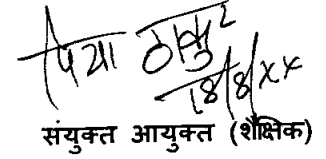 पिया ठाकुर
18/8/xx
संयुक्त आयुक्त (शैक्षिक)